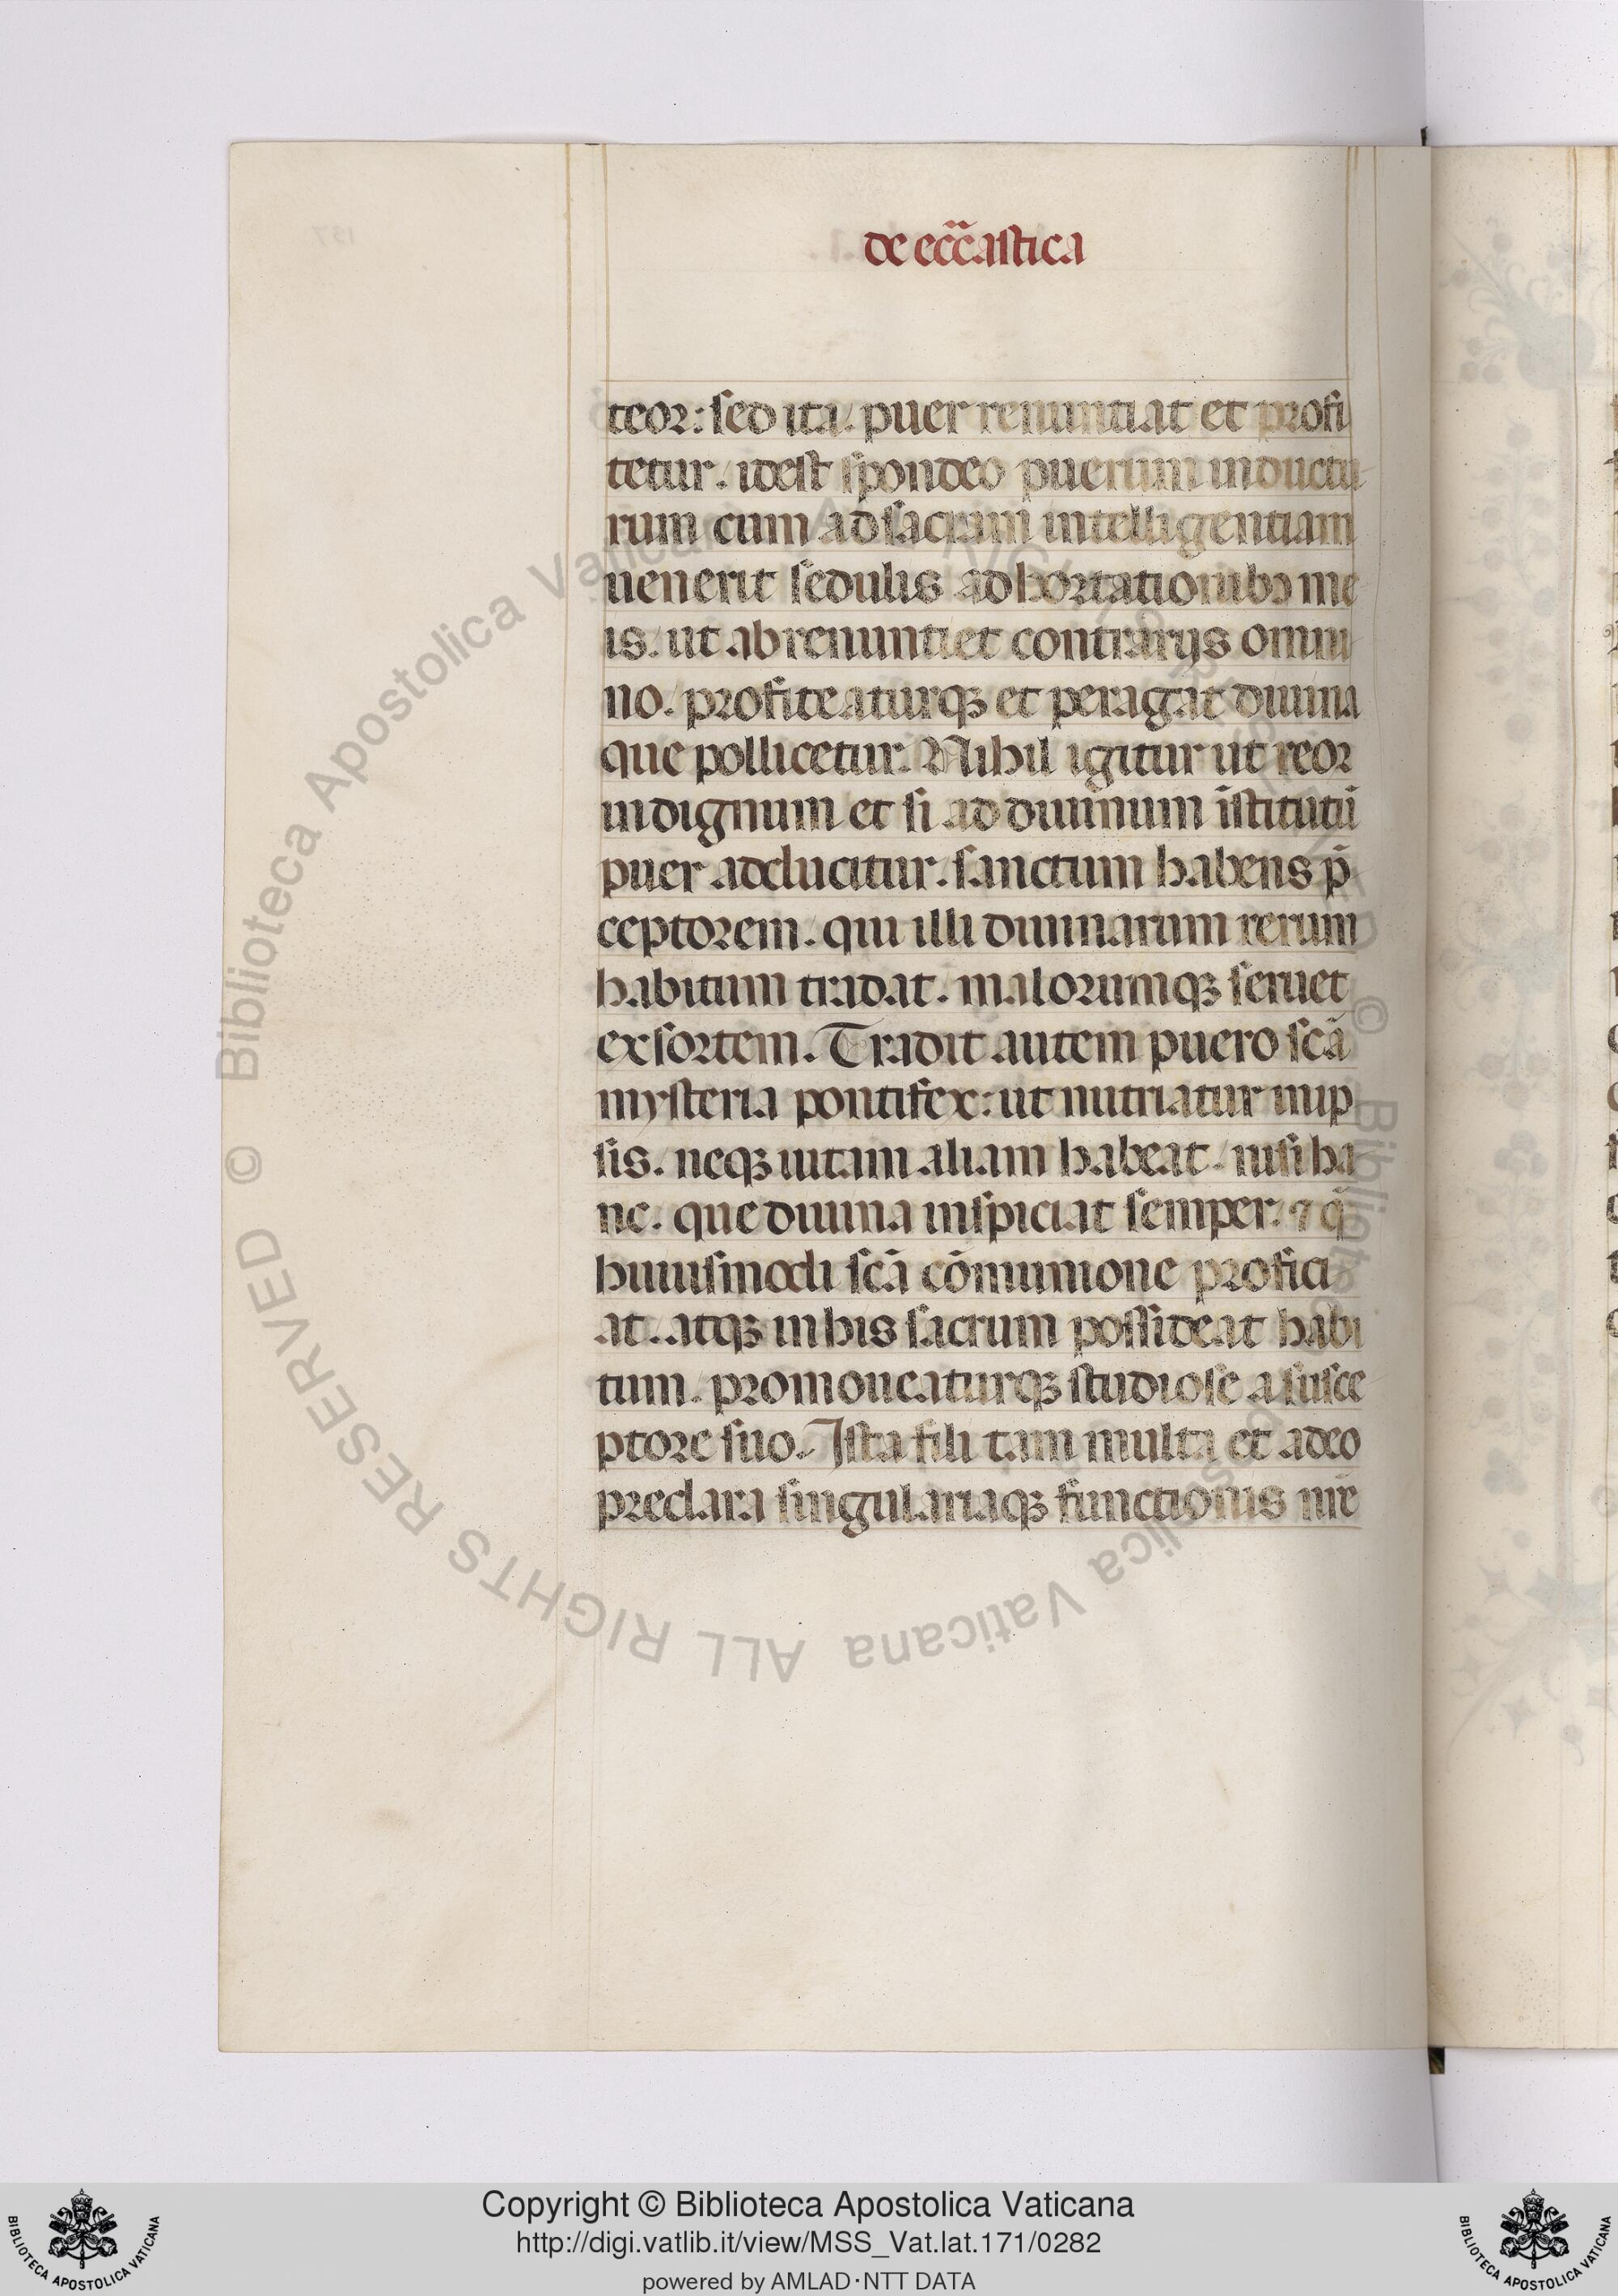 de ecc̃c̃astica
teor: sed ita. puer renuntiat et profi
tetur. idest spondeo puerum inductu
rum cum ad sacram intelligentiam
uenerit sedulis adhortationibꝫ me
is. ut abrenuntiet contrarijs omni
no. profiteaturqꝫ et peragat diuina
que pollicetur. Nihil igitur ut reor
indignum et si ad diuinum īstitutū
puer adducitur. sanctum habens p̄
ceptorem. qui illi diuinarum rerum
habitum tradat. malorumqꝫ seruet
exsortem. Tradit autem puero scā
mysteria pontifex: ut nutriatur in ip
sis. neqꝫ uitam aliam habeat. nisi ha
nc. que diuina inspiciat semper. ⁊ q̄
huiusmodi scā cōmunione profici
at. atqꝫ in his sacrum possideat habi
tum. promoueaturqꝫ studiose a susce
ptore suo. Ista fili tam multa et adeo
preclara singulariaqꝫ functionis nr̄e
© Biblioteca Apostolica Vaticana ALL RIGHTS RESERVED
Copyright © Biblioteca Apostolica Vaticana
http://digi.vatlib.it/view/MSS_Vat.lat.171/0282
powered by AMLAD·NTT DATA
BIBLIOTECA APOSTOLICA VATICANA
BIBLIOTECA APOSTOLICA VATICANA